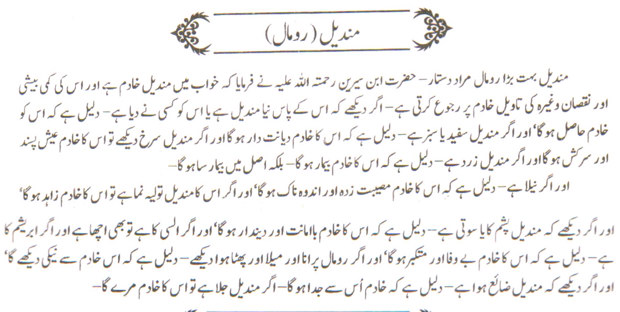 مندیل (رومال)
مندیل بہت بڑا رومال مراد دستار – حضرت ابن سیرین رحمتہ اللہ علیہ نے فرمایا کہ خواب میں مندیل خادم ہے اور اس کی کمی بیشی
اور نقصان وغیرہ کی تاویل خادم پر رجوع کرتی ہے – اگر دیکھے کہ اس کے پاس نیا مندیل ہے یا اس کو کسی نے دیا ہے – دلیل ہے کہ اس کو
خادم حاصل ہو گا' اور اگر مندیل سفید یا سبز ہے – دلیل ہے کہ اس کا خادم دیانت دار ہو گا اور اگر مندیل سرخ دیکھے تو اس کا خادم عیش پسند
اور سرکش ہو گا اور اگر مندیل زرد ہے – دلیل ہے کہ اس کا خادم بیمار ہو گا – بلکہ اصل میں بیمار سا ہو گا –
اور اگر نیلا ہے – دلیل ہے کہ اس کا خادم مصیبت زدہ اور اندوہ ناک ہو گا' اور اگر اس کا مندیل تولیہ نما ہے تو اس کا خادم زاہد ہو گا'
اور اگر دیکھے کہ مندیل پشم کا یا سوتی ہے – دلیل ہے کہ اس کا خادم باامانت اور دیندار ہو گا' اور اگر السی کا ہے تو بھی اچھا ہے اور اگر ابریشم کا
ہے – دلیل ہے کہ اس کا خادم بے وفا اور متکبر ہو گا' اور اگر رومال پرانا اور میلا اور پھٹا ہوا دیکھے – دلیل ہے کہ اس خادم سے نیکی دیکھے گا'
اور اگر دیکھے کہ مندیل ضائع ہوا ہے – دلیل ہے کہ خادم اُس سے جدا ہو گا – اگر مندیل جلا ہے تو اس کا خادم مرے گا –